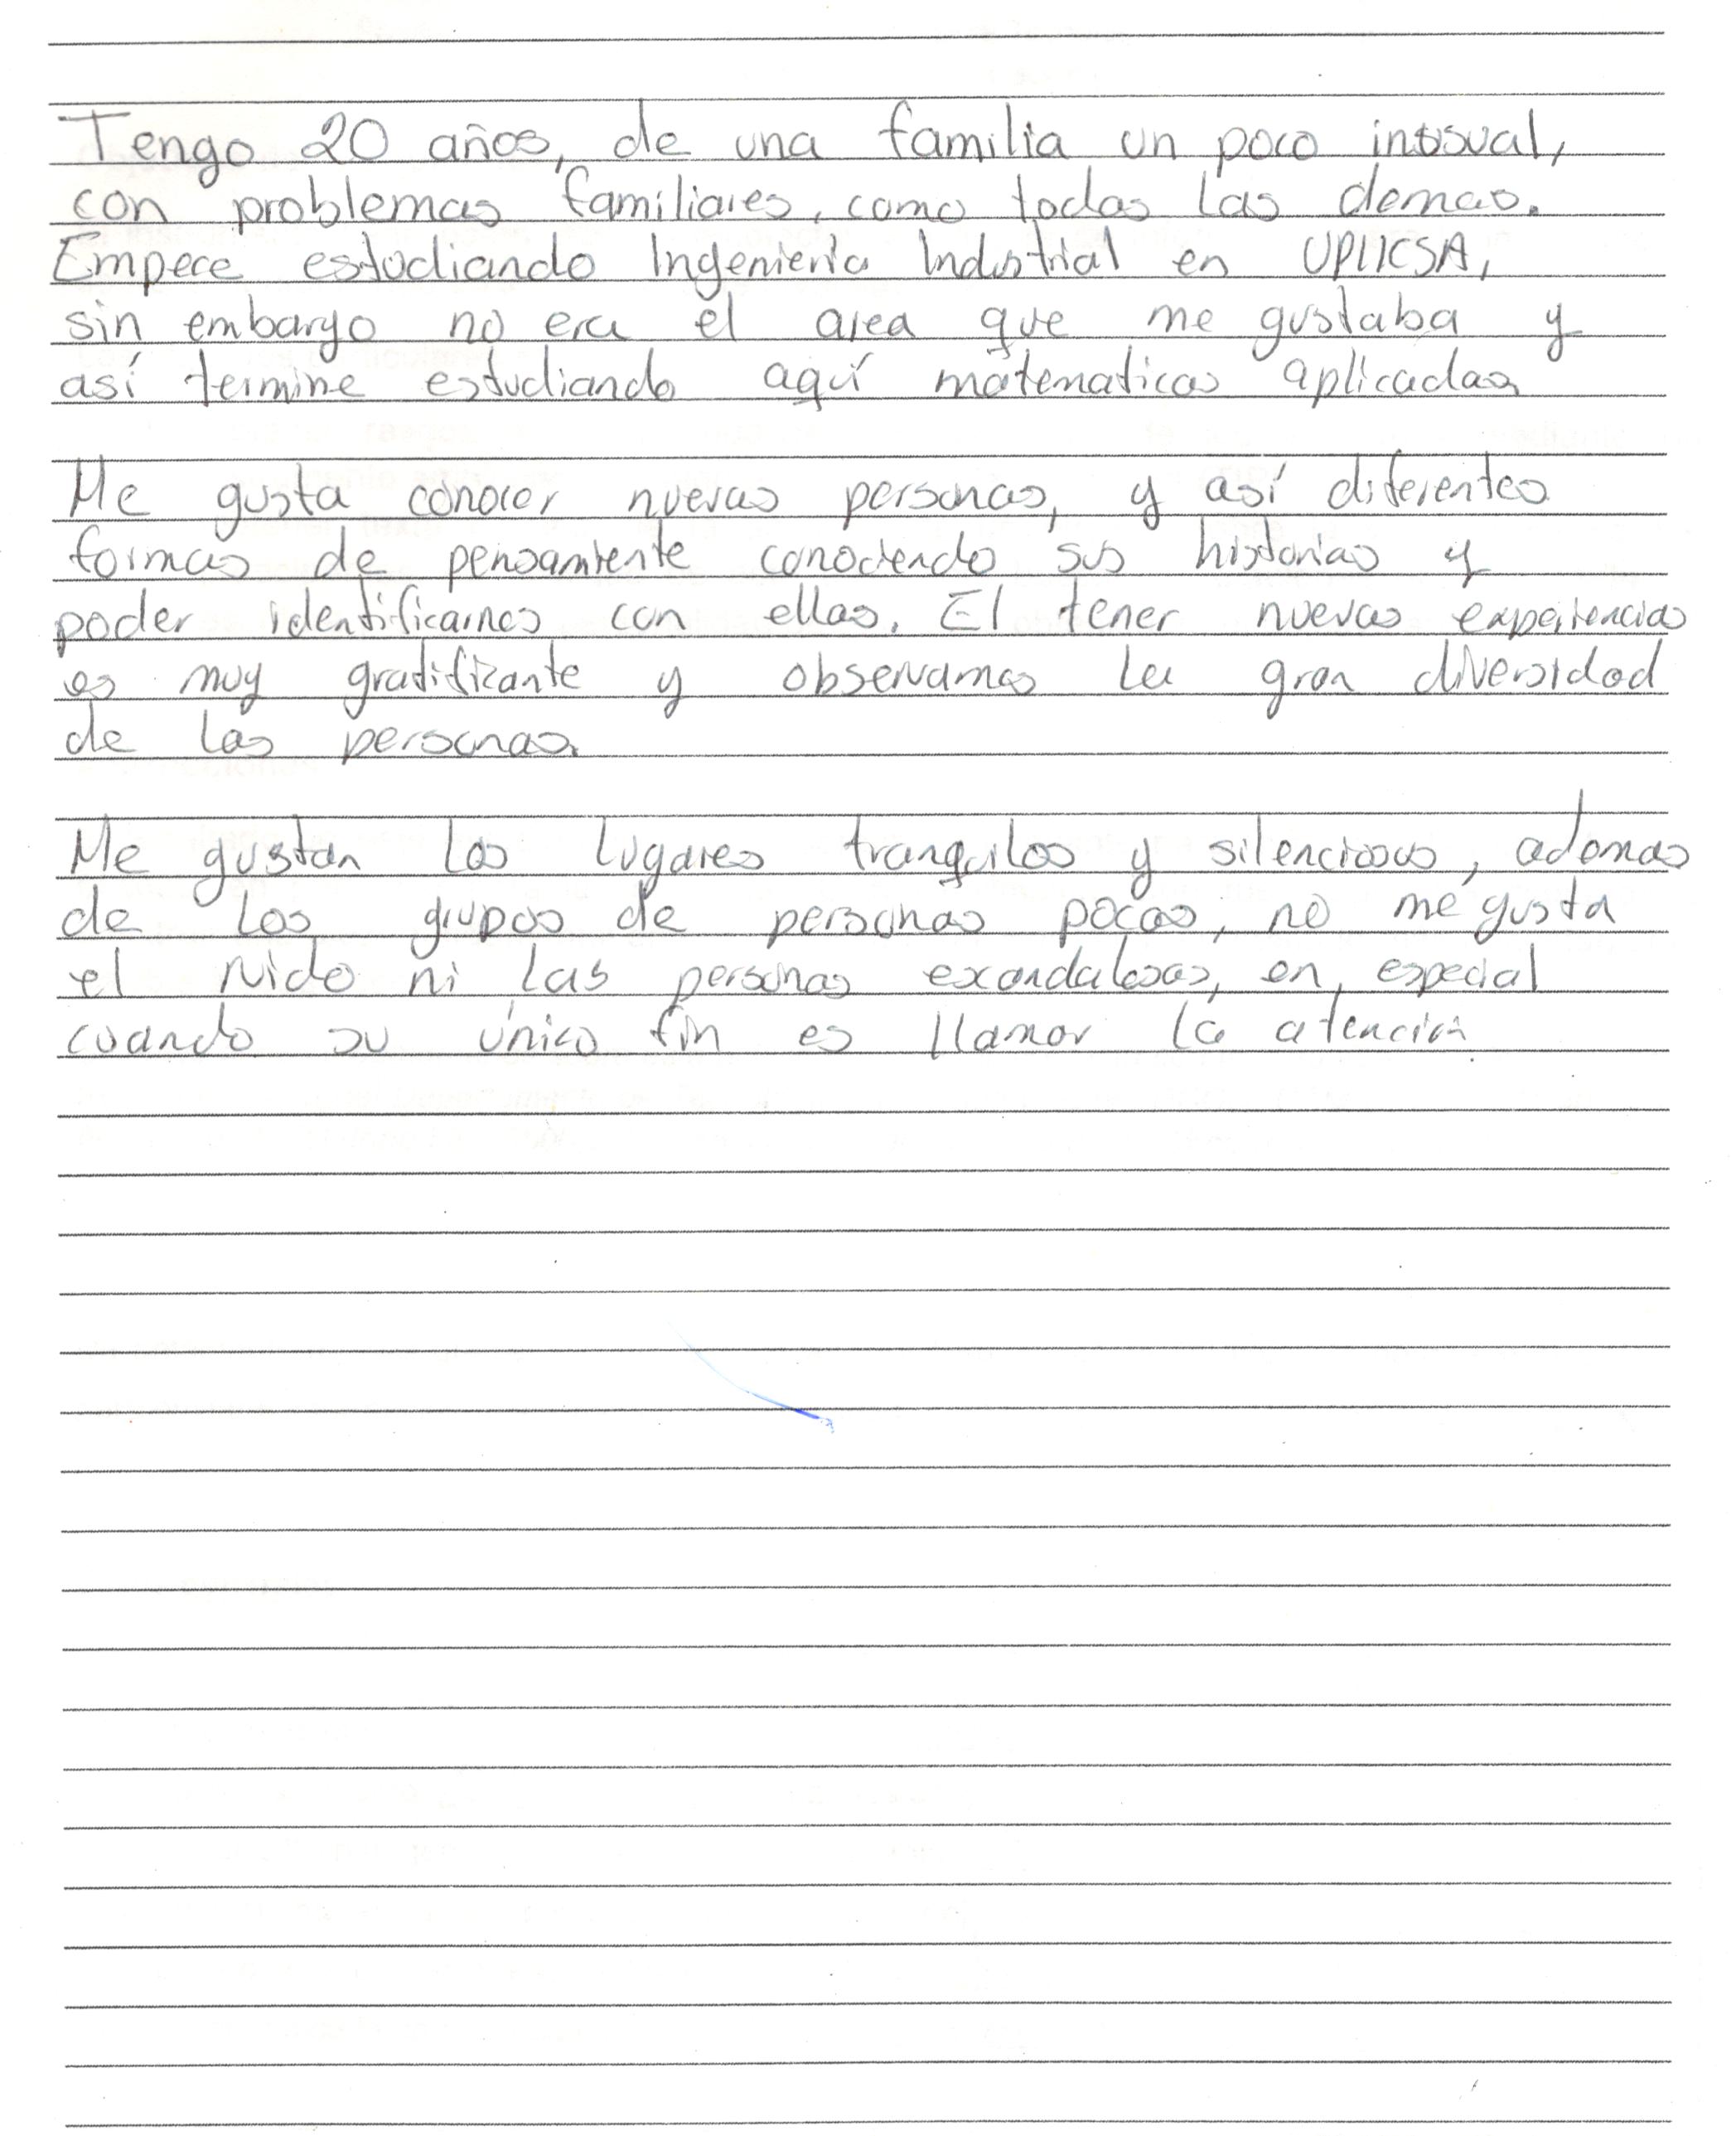 Tengo 20 años, de una familia un poco inusual,
con problemas familiares, como todas las demas.
Empece estudiando Ingeniería Industrial en UPIICSA,
sin embargo no era el area que me gustaba y
así termine estudiando aquí matematicas aplicadas.
Me gusta conocer nuevas personas, y así diferentes
formas de pensamiento conociendo sus historias y
poder identificarnos con ellas. El tener nuevas experiencias
es muy gratificante y observamos la gran diversidad
de las personas.
Me gustan los lugares tranquilos y silenciosos, ademas
de los grupos de personas pocas, no me gusta
el ruido ni las personas exandalosas, en especial
cuando su único fin es llamar la atención